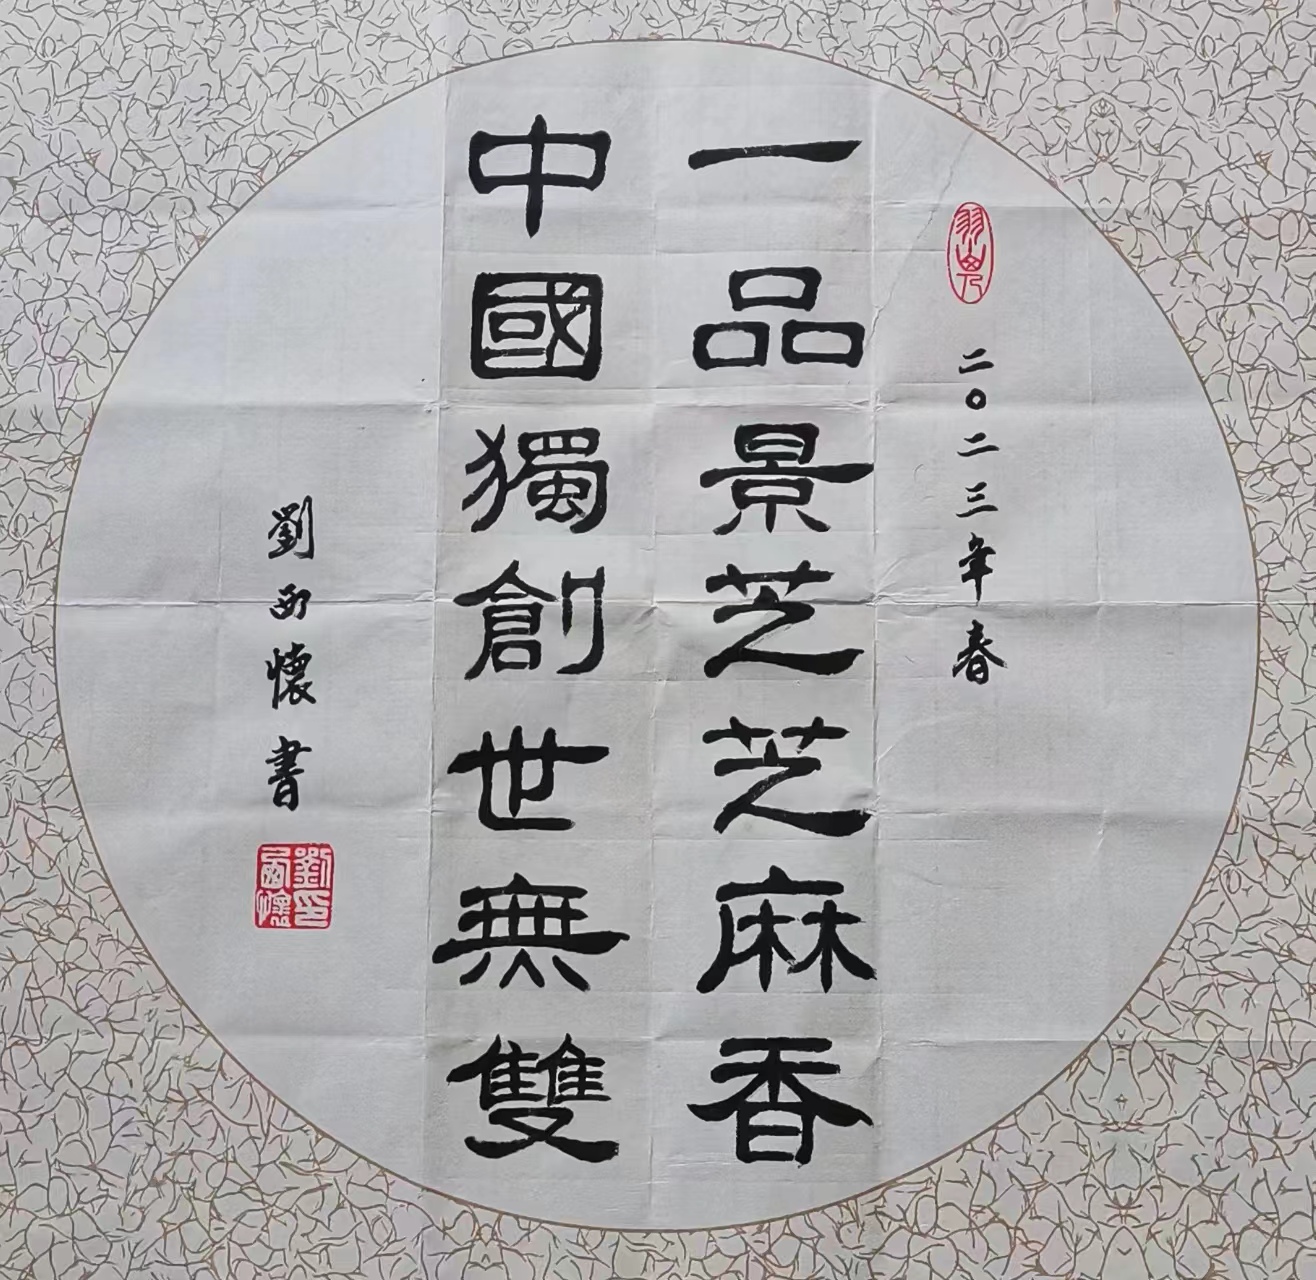 二〇二三年春
一品景芝芝麻香
中國獨創世無雙
劉西懷書